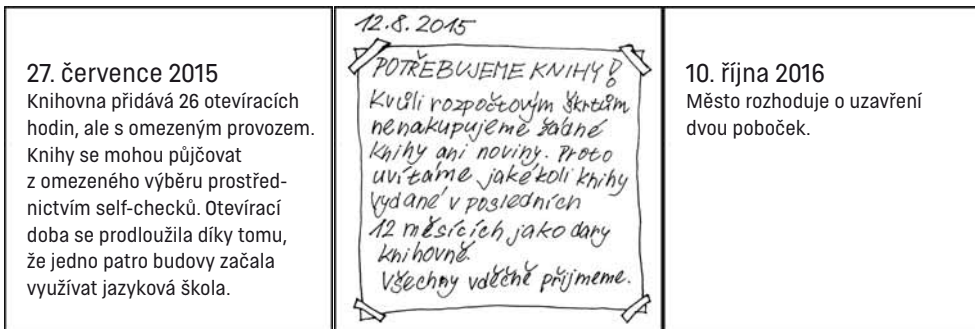 27. července 2015
Knihovna přidává 26 otevíracích
hodin, ale s omezeným provozem.
Knihy se mohou půjčovat
z omezeného výběru prostřed-
nictvím self-checků. Otevírací
doba se prodloužila díky tomu,
že jedno patro budovy začala
využívat jazyková škola.
12.8.2015
POTŘEBUJEME KNIHY!
Kvůli rozpočtovým škrtům
nenakupujeme žádné
knihy ani noviny. Proto
uvítáme jakékoli knihy
vydané v posledních
12 měsících jako dary
knihovně.
Všechny vděčně přijmeme.
10. října 2016
Město rozhoduje o uzavření
dvou poboček.